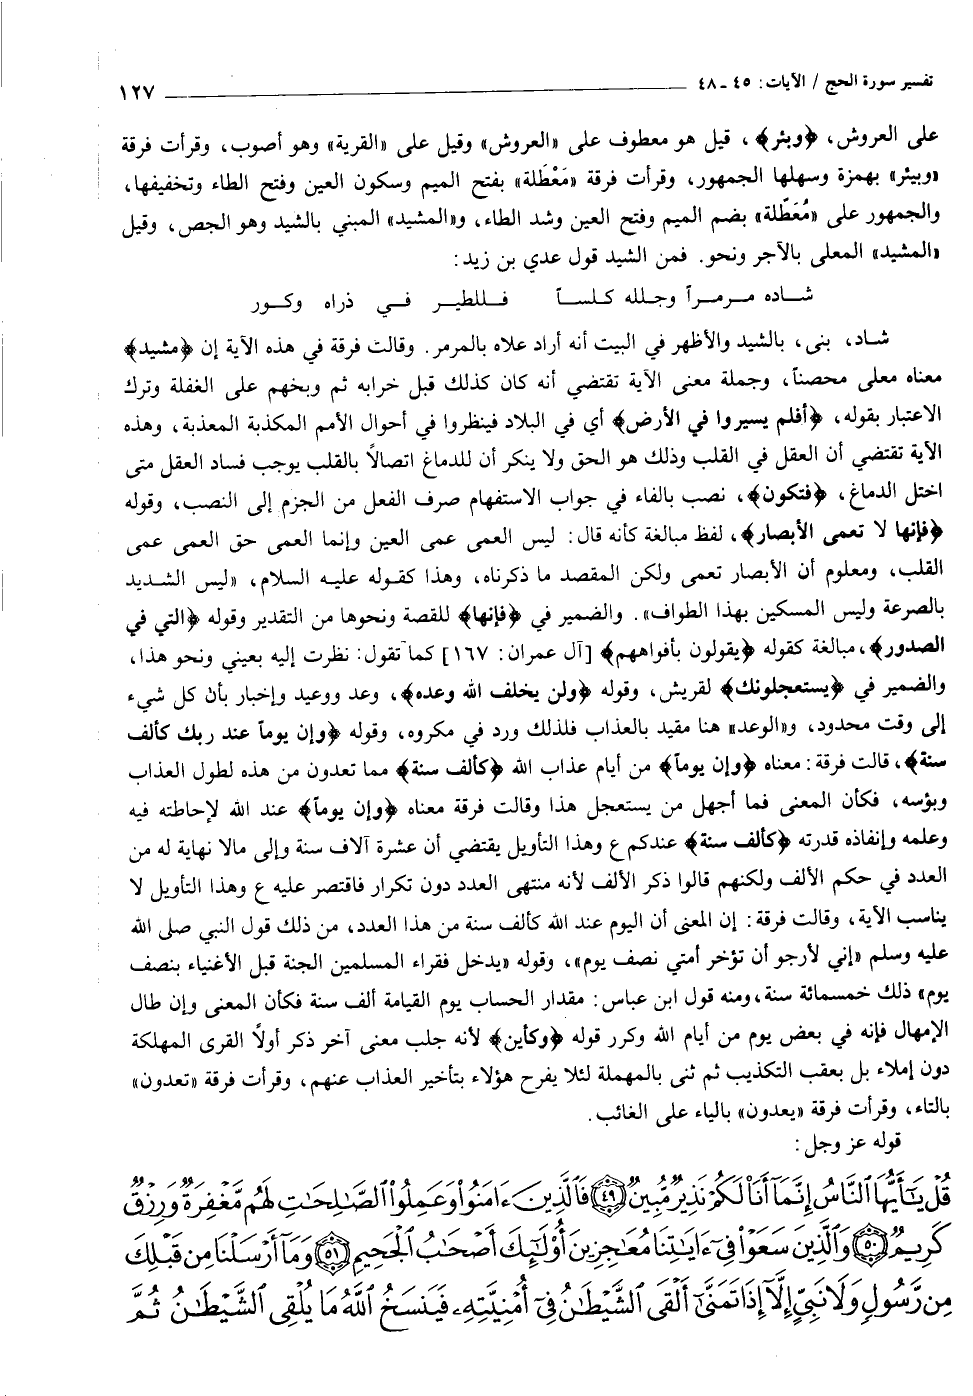 تفسير سورة الحج / الآيات: ٤٥ - ٤٨ ١٢٧
على العروش، ﴿وبئر﴾، قيل هو معطوف على «العروش» وقيل على «القرية» وهو أصوب، وقرأت فرقة
«وبيئر» بهمزة وسهلها الجمهور، وقرأت فرقة «مَعْطَلة» بفتح الميم وسكون العين وفتح الطاء وتخفيفها،
والجمهور على «مُعَطّلة» بضم الميم وفتح العين وشد الطاء، و«المشيد» المبني بالشيد وهو الجص، وقيل
«المشيد» المعلى بالآجر ونحو. فمن الشيد قول عدي بن زيد:
شاده مرمراً وجلله كلساً فللطير في ذراه وكور
شاد، بنى، بالشيد والأظهر في البيت أنه أراد علاه بالمرمر. وقالت فرقة في هذه الآية إن ﴿مشيد﴾
معناه معلى محصناً، وجملة معنى الآية تقتضي أنه كان كذلك قبل خرابه ثم وبخهم على الغفلة وترك
الاعتبار بقوله، ﴿أفلم يسيروا في الأرض﴾ أي في البلاد فينظروا في أحوال الأمم المكذبة المعذبة، وهذه
الآية تقتضي أن العقل في القلب وذلك هو الحق ولا ينكر أن للدماغ اتصالاً بالقلب يوجب فساد العقل متى
اختل الدماغ، ﴿فتكون﴾، نصب بالفاء في جواب الاستفهام صرف الفعل من الجزم إلى النصب، وقوله
﴿فإنها لا تعمى الأبصار﴾، لفظ مبالغة كأنه قال: ليس العمى عمى العين وإنما العمى حق العمى عمى
القلب، ومعلوم أن الأبصار تعمى ولكن المقصد ما ذكرناه، وهذا كقوله عليه السلام، «ليس الشديد
بالصرعة وليس المسكين بهذا الطواف». والضمير في ﴿فإنها﴾ للقصة ونحوها من التقدير وقوله ﴿التي في
الصدور﴾، مبالغة كقوله ﴿يقولون بأفواههم﴾ [آل عمران: ١٦٧] كما تقول: نظرت إليه بعيني ونحو هذا،
والضمير في ﴿يستعجلونك﴾ لقريش، وقوله ﴿ولن يخلف الله وعده﴾، وعد ووعيد وإخبار بأن كل شيء
إلى وقت محدود، و«الوعد» هنا مقيد بالعذاب فلذلك ورد في مكروه، وقوله ﴿وإن يوماً عند ربك كألف
سنة﴾، قالت فرقة: معناه ﴿وإن يوماً﴾ من أيام عذاب الله ﴿كألف سنة﴾ مما تعدون من هذه لطول العذاب
وبؤسه، فكأن المعنى فما أجهل من يستعجل هذا وقالت فرقة معناه ﴿وإن يوماً﴾ عند الله لإحاطته فيه
وعلمه وإنفاذه قدرته ﴿كألف سنة﴾ عندكم ع وهذا التأويل يقتضي أن عشرة آلاف سنة وإلى مالا نهاية له من
العدد في حكم الألف ولكنهم قالوا ذكر الألف لأنه منتهى العدد دون تكرار فاقتصر عليه ع وهذا التأويل لا
يناسب الآية، وقالت فرقة: إن المعنى أن اليوم عند الله كألف سنة من هذا العدد، من ذلك قول النبي صلى الله
عليه وسلم «إني لأرجو أن تؤخر أمتي نصف يوم»، وقوله «يدخل فقراء المسلمين الجنة قبل الأغنياء بنصف
يوم» ذلك خمسمائة سنة، ومنه قول ابن عباس: مقدار الحساب يوم القيامة ألف سنة فكأن المعنى وإن طال
الإمهال فإنه في بعض يوم من أيام الله وكرر قوله ﴿وكأين﴾ لأنه جلب معنى آخر ذكر أولاً القرى المهلكة
دون إملاء بل بعقب التكذيب ثم ثنى بالمهملة لئلا يفرح هؤلاء بتأخير العذاب عنهم، وقرأت فرقة «تعدون»
بالتاء، وقرأت فرقة «يعدون» بالياء على الغائب.
قوله عز وجل:
قُلْ يَٰٓأَيُّهَا ٱلنَّاسُ إِنَّمَآ أَنَا۠ لَكُمْ نَذِيرٌ مُّبِينٌ ﴿٤٩﴾ فَٱلَّذِينَ ءَامَنُوا۟ وَعَمِلُوا۟ ٱلصَّٰلِحَٰتِ لَهُم مَّغْفِرَةٌ وَرِزْقٌ
كَرِيمٌ ﴿٥٠﴾ وَٱلَّذِينَ سَعَوْا۟ فِىٓ ءَايَٰتِنَا مُعَٰجِزِينَ أُو۟لَٰٓئِكَ أَصْحَٰبُ ٱلْجَحِيمِ ﴿٥١﴾ وَمَآ أَرْسَلْنَا مِن قَبْلِكَ
مِن رَّسُولٍ وَلَا نَبِىٍّ إِلَّآ إِذَا تَمَنَّىٰٓ أَلْقَى ٱلشَّيْطَٰنُ فِىٓ أُمْنِيَّتِهِۦ فَيَنسَخُ ٱللَّهُ مَا يُلْقِى ٱلشَّيْطَٰنُ ثُمَّ